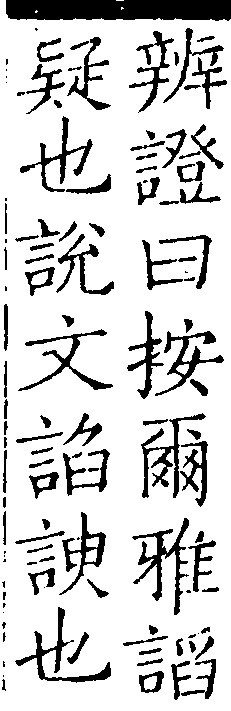 辨證曰按爾雅謟
疑也說文諂諛也